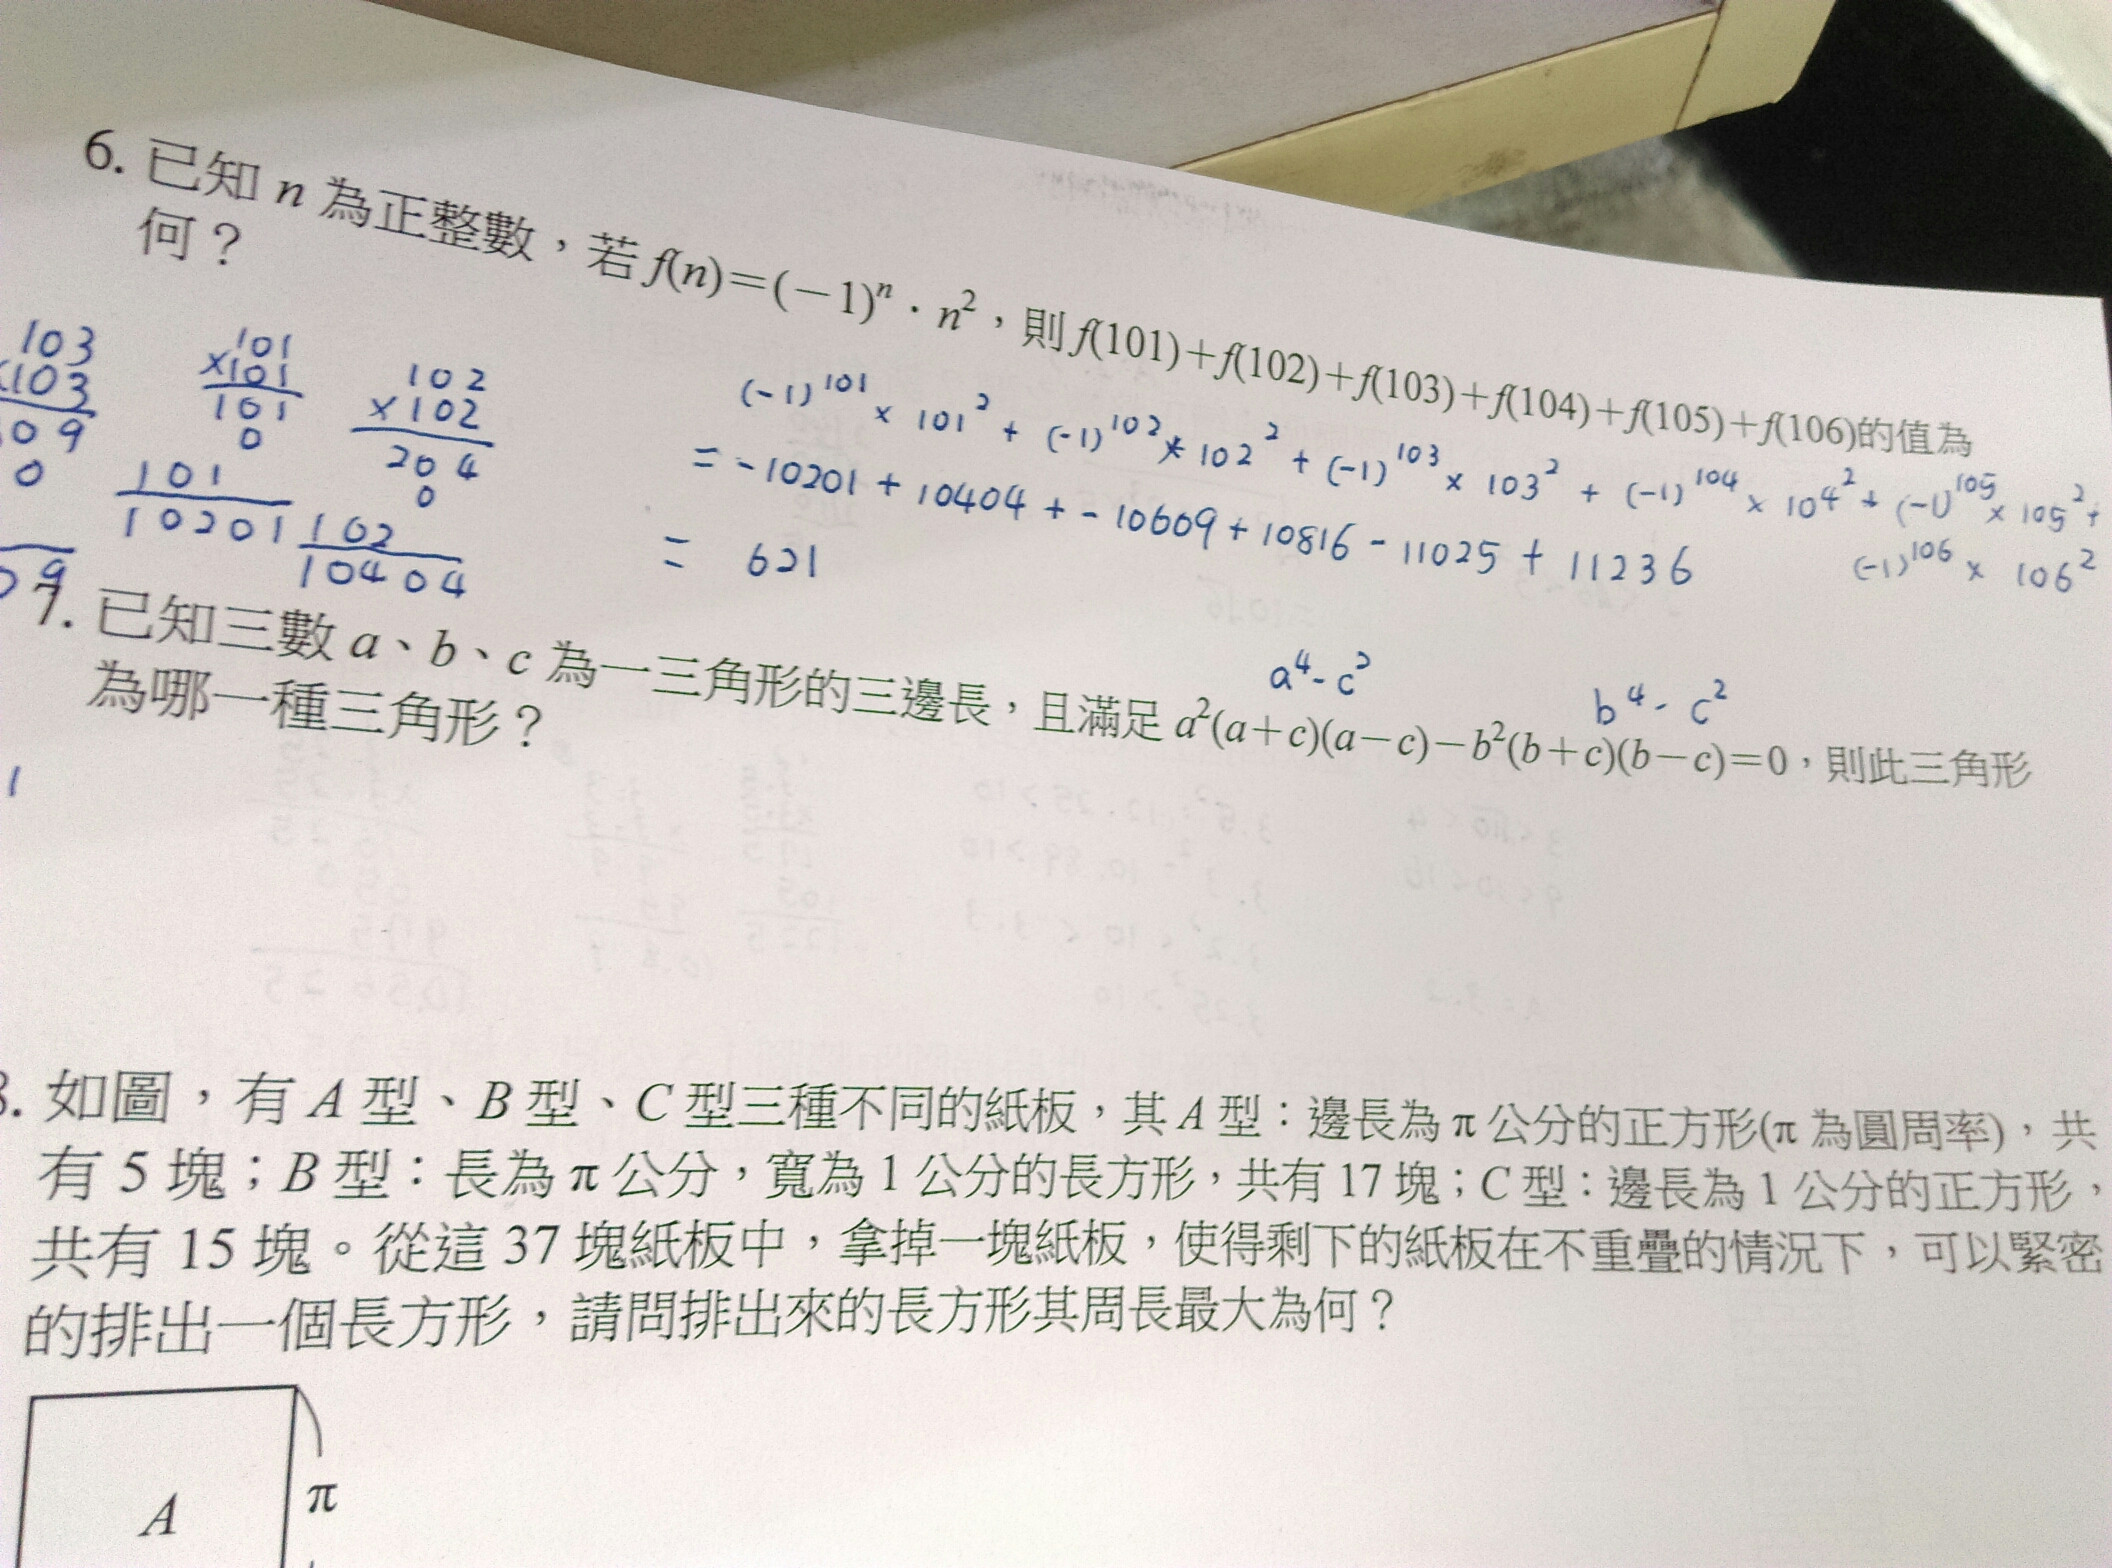 6. 已知 n 為正整數，若 f(n)=(−1)ⁿ．n²，則 f(101)+f(102)+f(103)+f(104)+f(105)+f(106)的值為
何？
103
×103
309
0
101
×101
101
0
101
10201
102
×102
204
0
102
10404
(-1)¹⁰¹ × 101² + (-1)¹⁰² × 102² + (-1)¹⁰³ × 103² + (-1)¹⁰⁴ × 104² + (-1)¹⁰⁵ × 105² +
(-1)¹⁰⁶ × 106²
= -10201 + 10404 + -10609 + 10816 - 11025 + 11236
= 621
7. 已知三數 a、b、c 為一三角形的三邊長，且滿足 a²(a+c)(a−c)−b²(b+c)(b−c)=0，則此三角形
a⁴-c²
b⁴-c²
為哪一種三角形？
8. 如圖，有 A 型、B 型、C 型三種不同的紙板，其 A 型：邊長為 π 公分的正方形(π 為圓周率)，共
有 5 塊；B 型：長為 π 公分，寬為 1 公分的長方形，共有 17 塊；C 型：邊長為 1 公分的正方形，
共有 15 塊。從這 37 塊紙板中，拿掉一塊紙板，使得剩下的紙板在不重疊的情況下，可以緊密
的排出一個長方形，請問排出來的長方形其周長最大為何？
A
π